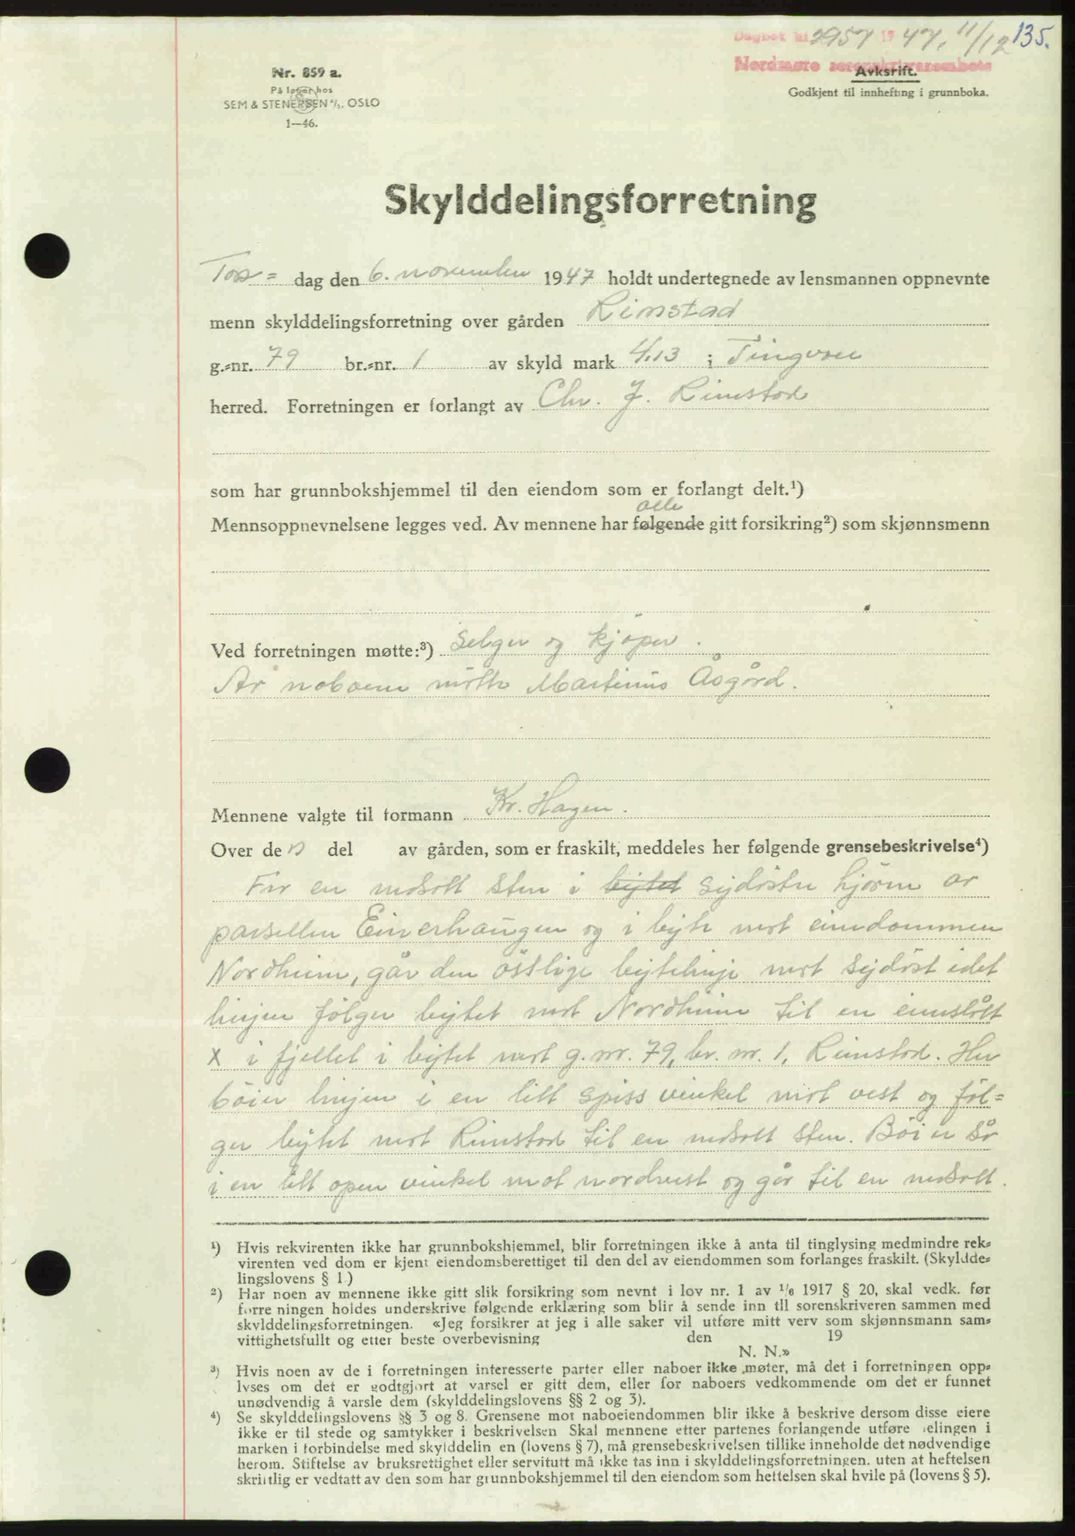 Dagbok nr. 2957 1947, 11/12 135.
Nordmøre sorenskriverembete
Nr. 859 a.
Avkskrift.
På lager hos
Godkjent til innhefting i grunnboka.
SEM & STENERSEN A/S, OSLO
1—46.
Skylddelingsforretning
Tors= dag den 6. november 1947 holdt undertegnede av lensmannen oppnevnte
menn skylddelingsforretning over gården Rimstad
g.-nr. 79 br.-nr. 1 av skyld mark 4,13 i Tingvoll
herred. Forretningen er forlangt av Chr. J. Rimstad
som har grunnbokshjemmel til den eiendom som er forlangt delt.¹)
alle
Mennsoppnevnelsene legges ved. Av mennene har følgende gitt forsikring²) som skjønnsmenn
Ved forretningen møtte:³) Selger og kjøper.
Av naboene møtte Martinus Åsgård.
Mennene valgte til formann Kr. Hagen.
Over den del av gården, som er fraskilt, meddeles her følgende grensebeskrivelse⁴)
Fra en nedsatt sten i bytet sydøstre hjørne av
parsellen Einerhaugen og i byte mot eiendommen
Nordheim, går den østlige bytelinje mot sydøst idet
linjen følger bytet mot Nordheim til en innslått
X i fjellet i bytet mot g.nr. 79, br. nr. 1, Rimstad. Her
bøier linjen i en litt spiss vinkel mot vest og føl=
ger bytet mot Rimstad til en nedsatt sten. Bøier så
i en litt open vinkel mot nordvest og går til en nedsatt
¹) Hvis rekvirenten ikke har grunnbokshjemmel, blir forretningen ikke å anta til tinglysing medmindre rek-
virenten ved dom er kjent eiendomsberettiget til den del av eiendommen som forlanges fraskilt. (Skyldde-
lingslovens § 1.)
²) Har noen av mennene ikke gitt slik forsikring som nevnt i lov nr. 1 av 1/6 1917 § 20, skal vedk. før
forretningen holdes underskrive følgende erklæring som blir å sende inn til sorenskriveren sammen med
skylddelingsforretningen. «Jeg forsikrer at jeg i alle saker vil utføre mitt verv som skjønnsmann sam-
vittighetsfullt og etter beste overbevisning den 19
N. N.»
³) Hvis noen av de i forretningen interesserte parter eller naboer ikke møter, må det i forretningen opp-
lyses om det er godtgjort at varsel er gitt dem, eller for naboers vedkommende om det er funnet
unødvendig å varsle dem (skylddelingslovens §§ 2 og 3).
⁴) Se skylddelingslovens §§ 3 og 8. Grensene mot naboeiendommen blir ikke å beskrive dersom disse eiere
ikke er til stede og samtykker i beskrivelsen. Skal mennene etter partenes forlangende utføre delingen i
marken i forbindelse med skylddelingen (lovens § 7), må grensebeskrivelsen tillike inneholde det nødvendige
herom. Stiftelse av bruksrettighet eller servitutt må ikke tas inn i skylddelingsforretningen, uten at heftelsen
skriftlig er vedtatt av den som har grunnbokshjemmel til den eiendom som heftelsen skal hvile på (lovens § 5).